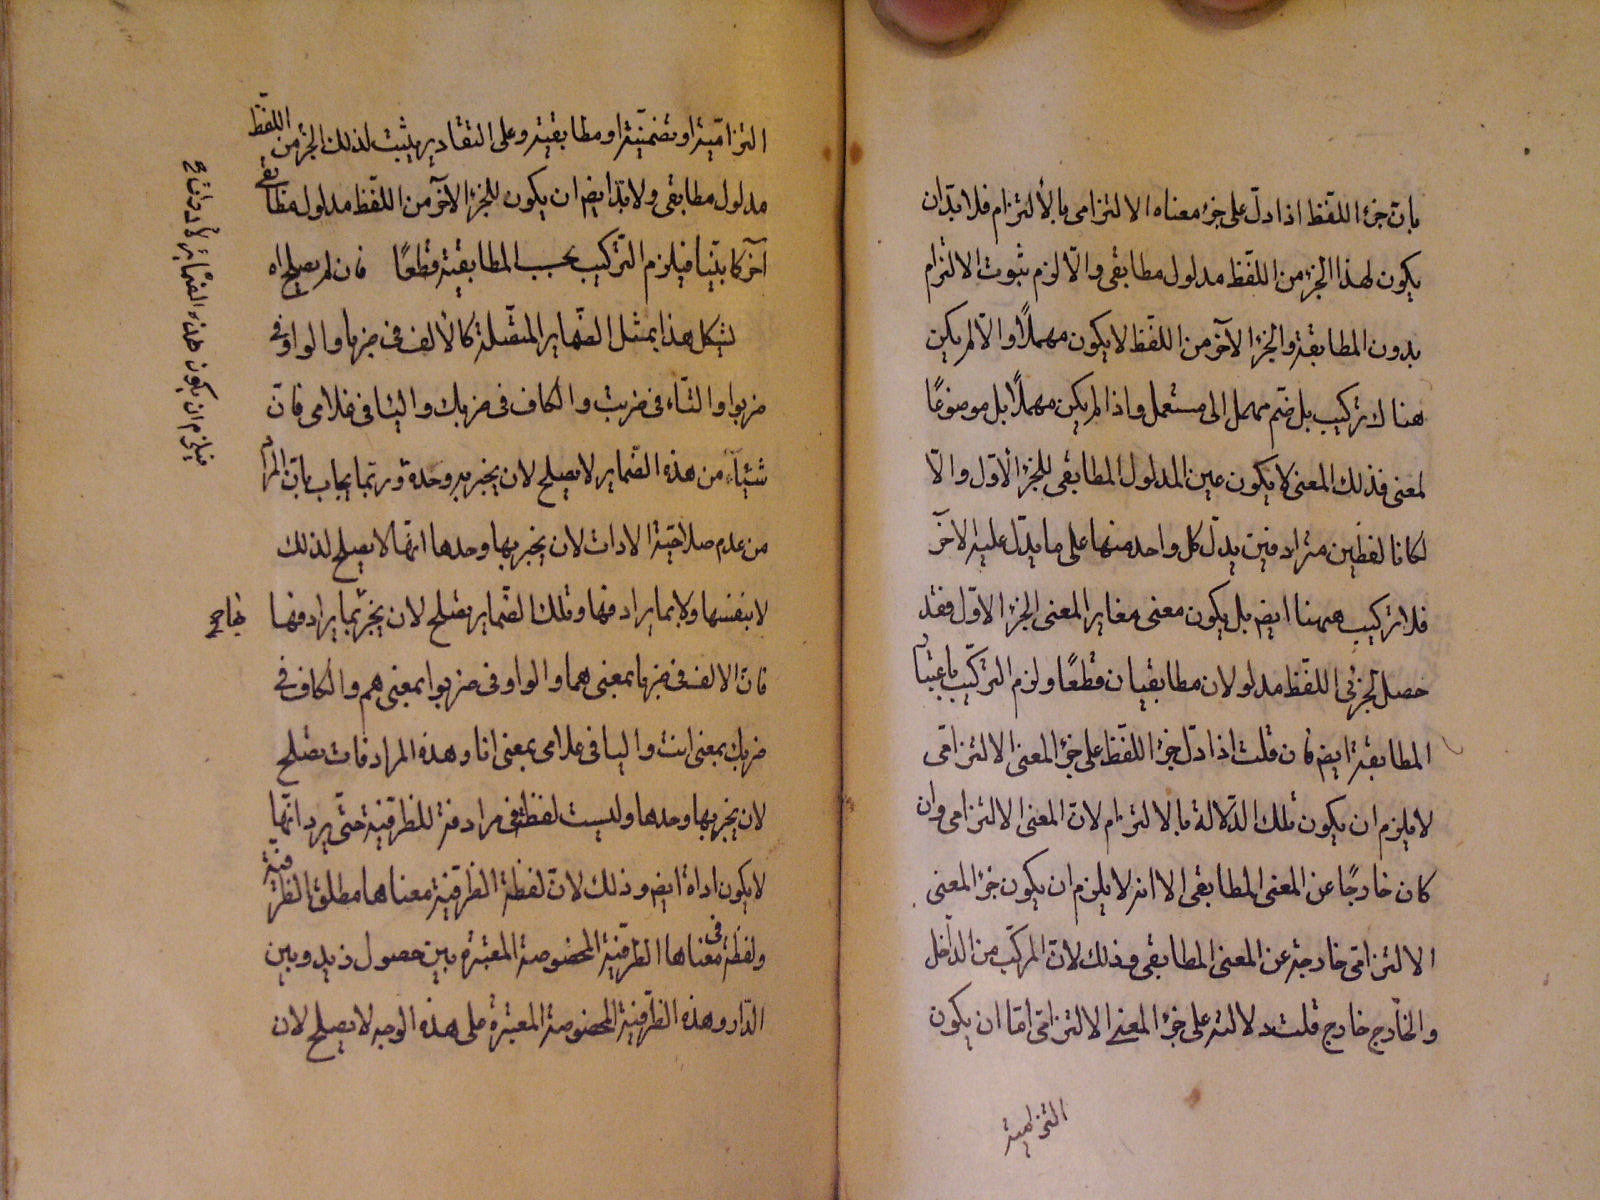 بان جزء اللفظ اذا دلّ على جزء معناه الالتزامى بالألتزام فلا بدّ ان
يكون لهذا الجزء من اللفظ مدلول مطابقى والّا لزم ثبوت الالتزام
بدون المطابقة والجزء الآخر من اللفظ لا يكون مهملاً والّا لم يكن
هناك تركيب بل ضم مهمل الى مستعمل واذا لم يكن مهملاً بل موضوعًا
لمعنى فذلك المعنى لا يكون عين المدلول المطابقى للجزء الأوّل والّا
لكانا لفظين مترادفين يدلّ كل واحد منهما على ما يدّل عليه الآخر
فلا تركيب ههنا ايض بل يكون معنى مغاير المعنى الجزء الاوّل فقد
حصل لجزئى اللفظ مدلولان مطابقيان قطعًا ولزم التركيب باعتبار
المطابقة ايض فان قلت اذا دلّ جزء اللفظ على جزء المعنى الالتزامى
لا يلزم ان يكون تلك الدّلالة بالالتزام لانّ المعنى الالتزامى وان
كان خارجًا عن المعنى المطابقى الا انه لا يلزم ان يكون جزء المعنى
الالتزامّى خارجة عن المعنى المطابقى وذلك لانّ المركّب من الدّاخل
والخارج خارج قلت دلالته على جزء المعنى الالتزامّى امّا ان يكون
التزامية
التزاميّة او تضمنيّة او مطابقية وعلى التقادير يثبت لذلك الجزء من اللفظ
مدلول مطابقى ولا بدّ ايض ان يكون للجزء الآخر من اللفظ مدلول مطابقى
آخر كا بيّنا فيلزم التركيب بحسب المطابقية قطعًا فان لم يصلح اه
ليشكل هذا بمثل الضماير المتصّلة كالألف فى ضربا والواو فى
ضربوا والتّاء فى ضربت والكاف فى ضربك والياء فى غلامى فانّ
شيئاً من هذه الضماير لا يصلح لان يخبر به وحده وربّما يجاب بانّ المراد
من عدم صلاحيّة الادات لان يخبر بها وحدها انّها لا يصلح لذلك
لا بنفسها ولا بما يرادفها وتلك الضماير يصلح لان يخبر بما يرادفها
فانّ الالف فى ضربا بمعنى هما والواو فى ضربوا بمعنى هم والكاف فى
ضربك بمعنى انت واليا فى غلامى بمعنى انا وهذه المرادفات يصلح
لان يخبر بها وحدها وليست لفظة فى مرادفة للظرفيّة حتّى يرد انّها
لا يكون اداة ايض وذلك لانّ لفظة الظرفيّة معناها مطلق الظرفيّة
ولفظة فى معناها الظرفيّة المخصوصة المعتبرة بين حصول زيد وبين
الدّار وهذه الظرفيّة المخصوصة المعتبرة على هذه الوجه لا يصلح لان
فيلزم ان يكون هذه الضماير